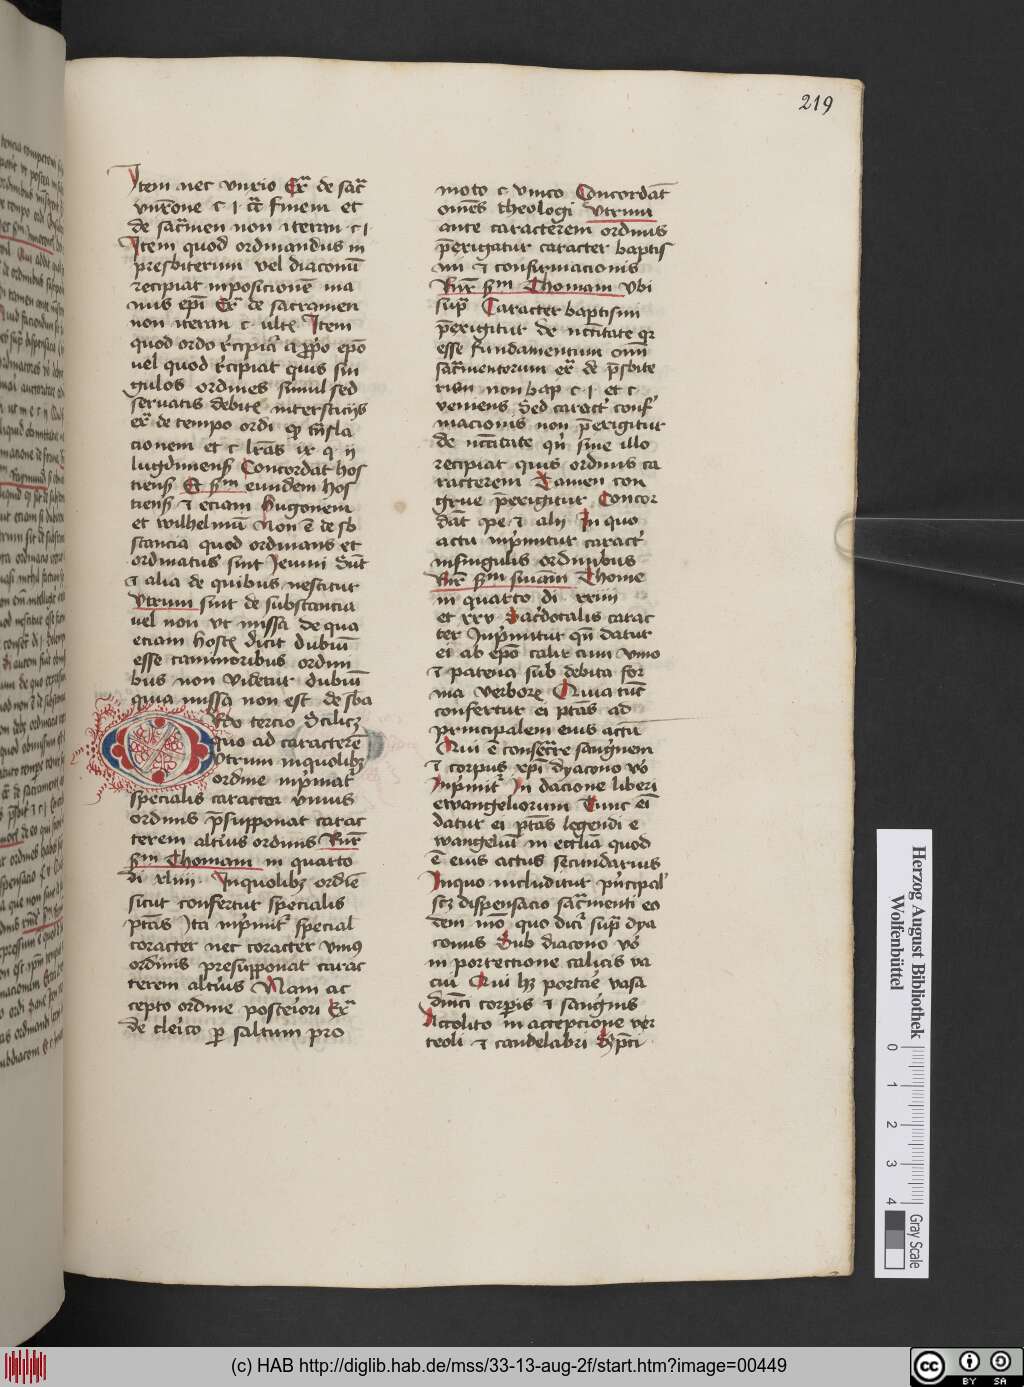 219
Item nec vnxio Exͣ de sac̄r
vnx̄one c i cͣ finem et
de sac̄rmen non iteran c i
Item quod ordinandus in
presbiterum vel diaconū
recipiat inposicionē ma
nus ep̄i Exͣ de sacramen
non iteran c ult̄e Item
quod ordo r̄cipiat̄ a p̄po ep̄o
vel quod r̄cipiat quis sin
gulos ordines simul sed
seruatis debite intersticijs
exͣ de tempo ordi
cionem et c
lugdunens̄ Concordat hos
tiens̄ Et sm̄ eundem hos
tiens̄ et eciam hugonem
et wilhelmū Non ē de sb
stancia quod ordinans et
ordinatus sint Ieiuni
et alia de quibus nescitur
Vtrum sint de substancia
uel non vt missa de qua
eciam host̄ dicit dubiū
esse tam minoribus ordini
bus non videtur dubiū
quia missa non est de sba
Ordo tercio Scilicꝫ
quo ad caracterē
Vtrum in quolibꝫ
ordine inp̄mat̄
specialis caracter vnius
ordinis p̄supponat carac
terem alterius ordinis Rn̄r
sm̄ Thomam in quarto
di xliiii Inquolibꝫ ordīe
sicut confertur specialis
ptās Ita inp̄mit̄ special
coracter nec coracter vnius
ordinis presupponat carac
terem alterius Nam ac
cepto ordine posteriori Exͣ
de clerico ꝑ saltum pro
moto c vnico Concordāt
om̄es theologi Vtrum
ante caracterem ordinis
p̄exigatur caracter baptis
mi et confirmacionis
Rn̄r sm̄ Thomam Vbi
sup̄ Caracter baptismi
p̄exigitur de nc̄citate qr
esse fundamentum om̄i
sac̄rmentorum exͣ de p̄sbite
rum non bap c i et c
veniens Sed caract̄ conf̄
macionis non p̄exigitur
de nc̄citate qn̄ sine illo
recipiat quis ordinis ca
racterem Tamen con
grue p̄exigitur Concor
dāt pe et alij In quo
actu inp̄mitur caract̄
in singulis ordinibus
Rn̄r sm̄ sniam Thome
in quarto di xxiiii
et xxv Sacerdotalis carac
ter Inp̄mitur qn̄ datur
ei ab ep̄o calix cum vino
et patena sub debita for
ma verborꝫ Quia tūc
confertur ei ptās ad
principalem eius actū
Qui ē consecrare sanguinem
et corpus xp̄i dyacono vō
Inp̄mit̄ In dacione liberi
ewangeliorum Tunc eī
datur ei ptās legendi e
wangeliū in ecclia quod
ē eius actus secundarius
Inquo includitur p̄ncipal̄
scꝫ dispensacio sac̄rmenti eo
dem mō quo dicit̄ sup̄ dya
conus Sub diacono vō
in porrectione calicis va
cui Qui hꝫ portare vasa
dn̄ici corporis et sanguinis
Accolito in accepcione vr
ceoli et candelabri
Herzog August Bibliothek
Wolfenbüttel
0 1 2 3 4
Gray Scale
(c) HAB http://diglib.hab.de/mss/33-13-aug-2f/start.htm?image=00449
cc BY SA